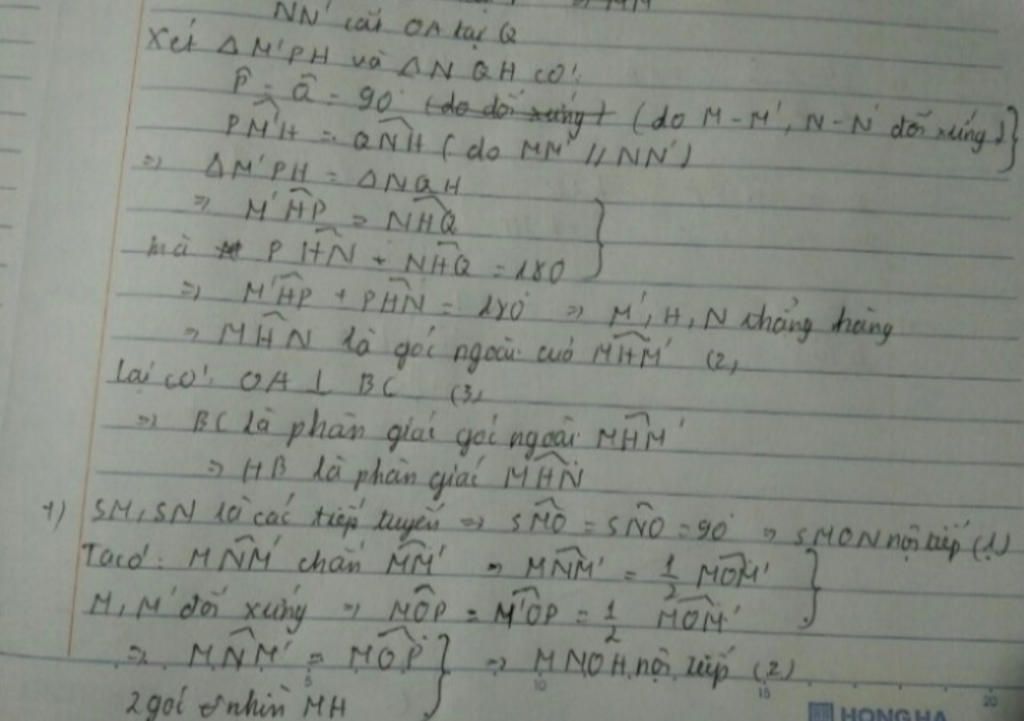 NN' cắt OA tại Q
Xét ΔM'PH và ΔNQH có:
P̂ = Q̂ = 90° (do đối xứng) (do M-M', N-N' đối xứng)
PM'H = QNH (do MM' // NN')
=> ΔM'PH = ΔNQH
=> M'HP = NHQ
mà PHN + NHQ = 180
=> M'HP + PHN = 180° => M', H, N thẳng hàng
=> MHN là góc ngoài cuả MHM' (2)
Lại có: OA ⊥ BC (3)
=> BC là phân giác góc ngoài MHM'
=> HB là phân giác MHN
+) SM, SN là các tiếp tuyến => SMO = SNO = 90° => SMON nội tiếp (1)
Ta có: MNM' chắn MM' => MNM' = 1/2 MOM'
M, M' đối xứng => MOP = M'OP = 1/2 MOM'
=> MNM' = MOP => MNOH nội tiếp (2)
2 góc nhìn MH
5 10 15 20
HONG HA